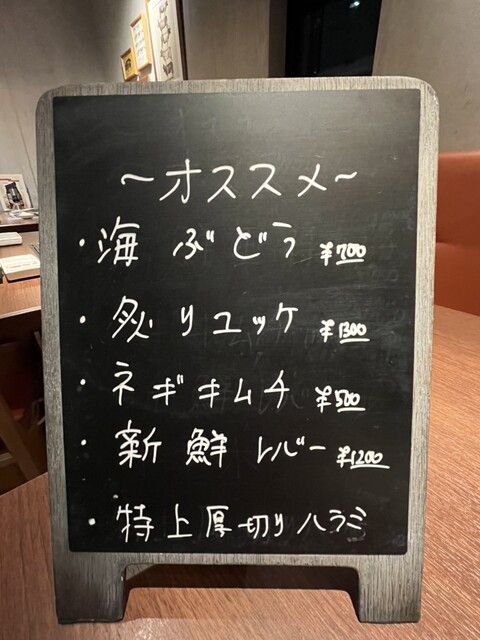 ～オススメ～
・海ぶどう ¥700
・炙りユッケ ¥1300
・ネギキムチ ¥500
・新鮮レバー ¥1200
・特上厚切りハラミ